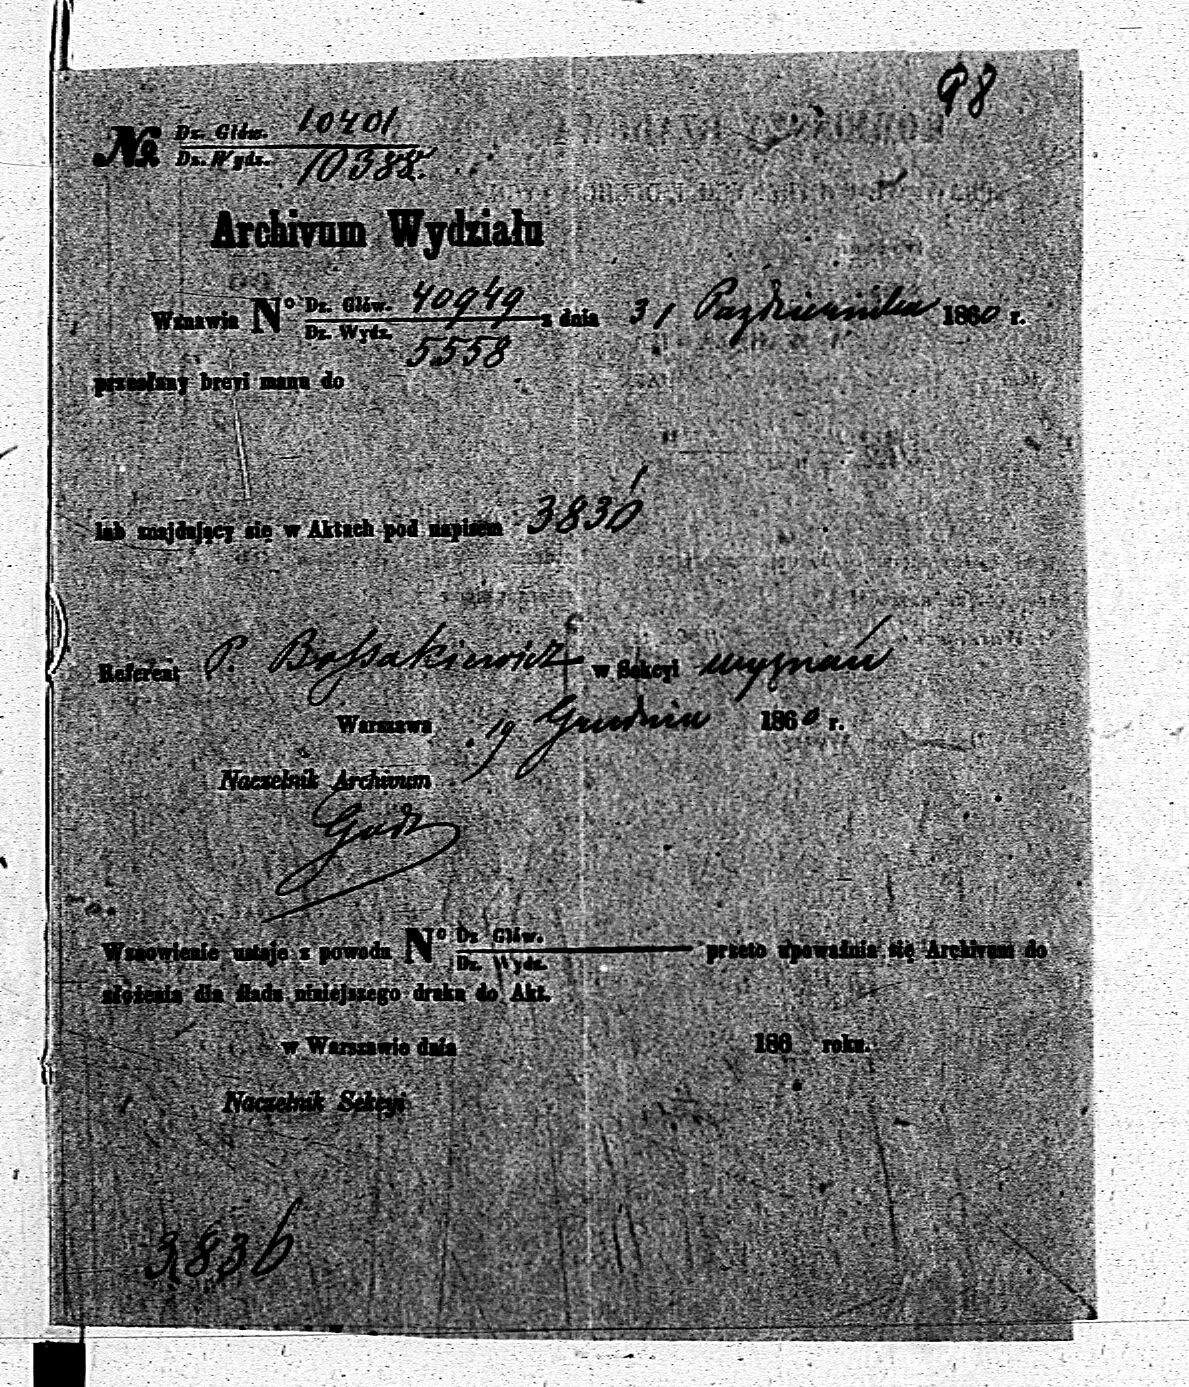 98
№ Dz. Głów. 10401
Dz. Wydz. 10382.
Archivum Wydziału
Wznawia Nº Dz. Głów. 40949 z dnia 31 Października 1860 r.
Dz. Wydz. 5558
przesłany brevi manu do
lub znajdujący się w Aktach pod napisem 3836
Referent P. Bossakiewicz w Sekcyi wygnań
Warszawa 19 Grudnia 1860 r.
Naczelnik Archivum
Wznowienie ustaje z powodu Nº Dz. Głów. przeto upoważnia się Archivum do
Dz. Wydz.
złożenia dla śladu niniejszego druku do Akt.
w Warszawie dnia 186 roku.
Naczelnik Sekcyi
3836